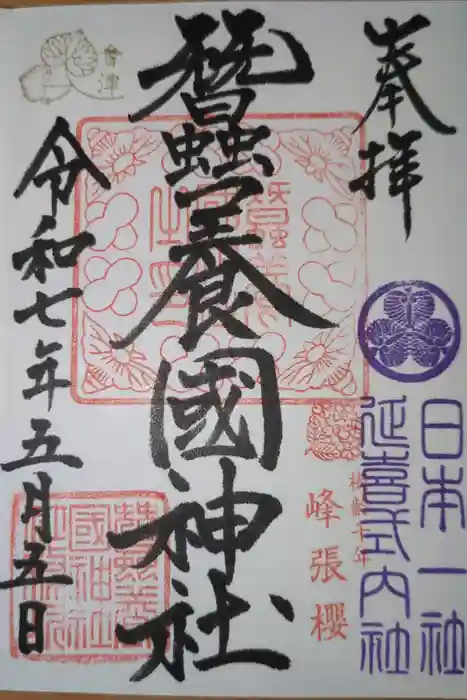 奉拝
日本一社
延喜式内社
樹齢千年
峰張櫻
蠶養國神社
會津
令和七年五月五日